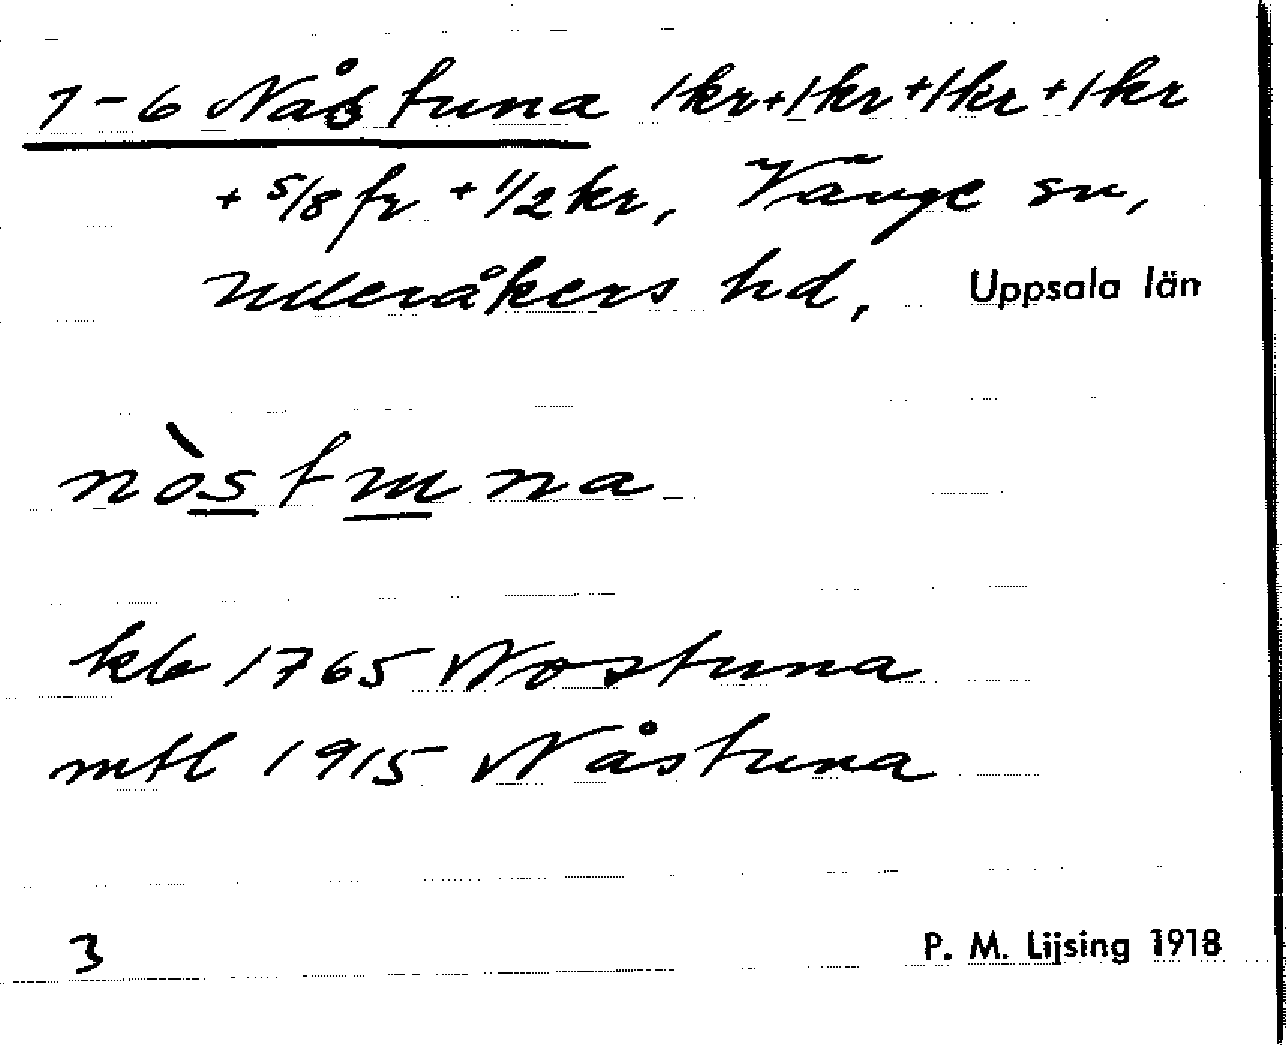 1-6 Nåstuna 1kr+1kr+1kr+1kr
+ 5/8 fr + 1/2 kr, Vänge sn,
Ulleråkers hd, Uppsala län
nòstuna
kb 1765 Nostuna
mtl 1915 Nåstuna
3
P. M. Lijsing 1918